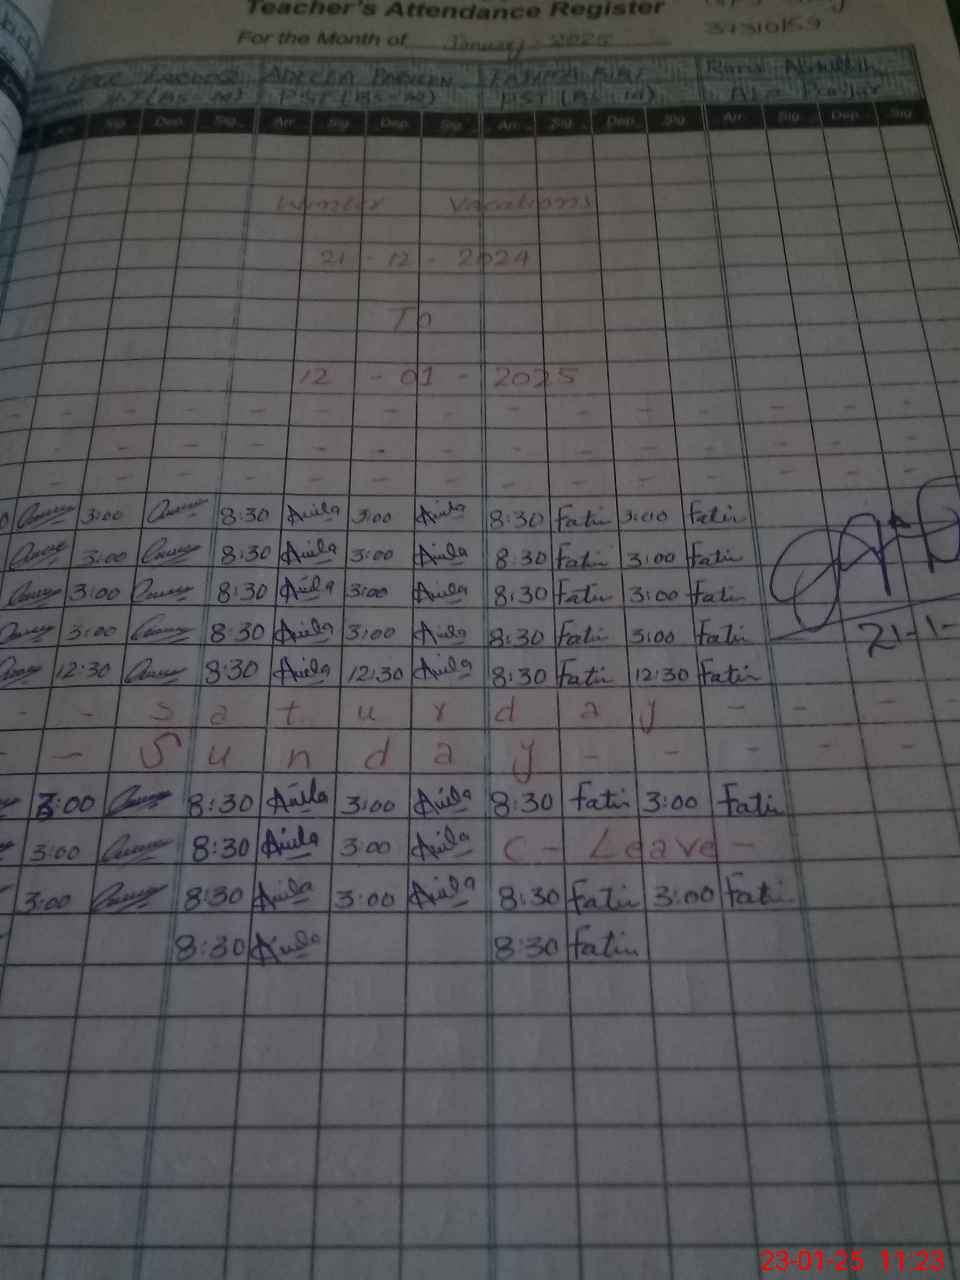 Teacher's Attendance Register
For the Month of January 2025
37310159
ADEELA PARVEEN FATIMA BIBI Rana Abdullah
PST (BS-14) PST (BS-14)
Arr. Sig. Dep. Sig. Arr. Sig. Dep. Sig. Arr. Sig. Dep. Sig. Arr. Sig. Dep. Sig.
Winter Vacations
21 - 12 - 2024
To
12 - 01 - 2025
- - - - - - - - - - - - - - -
- - - - - - - - - - - - -
- - - - - - - - - - - - -
3:00 8:30 Aiula 3:00 Aiula 8:30 Fatii 3:00 Fatii
3:00 8:30 Aiula 3:00 Aiula 8:30 Fatii 3:00 Fatii
3:00 8:30 Aiula 3:00 Aiula 8:30 Fatii 3:00 Fatii
3:00 8:30 Aiula 3:00 Aiula 8:30 Fatii 3:00 Fatii
21-1-
12:30 8:30 Aiula 12:30 Aiula 8:30 Fatii 12:30 Fatii
- - S a t u r d a y - - - -
- - S u n d a y - - - - - -
3:00 8:30 Aiula 3:00 Aiula 8:30 Fatii 3:00 Fatii
3:00 8:30 Aiula 3:00 Aiula C - Leave -
3:00 8:30 Aiula 3:00 Aiula 8:30 Fatii 3:00 Fatii
8:30 Aiula 8:30 Fatii
23-01-25 11:23